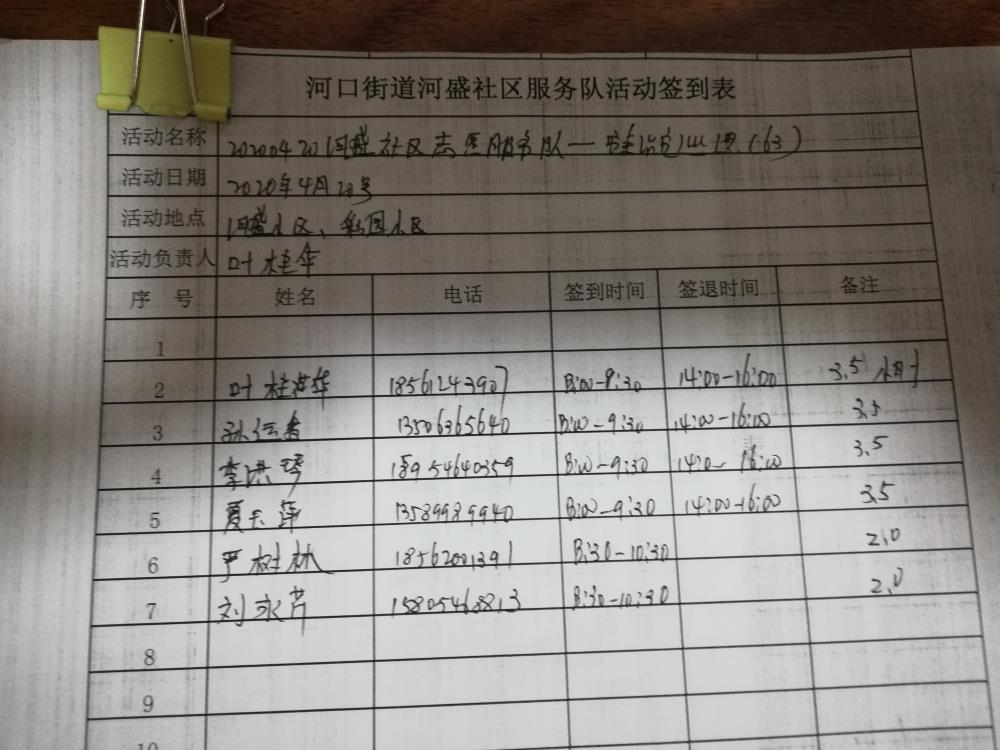 河口街道河盛社区服务队活动签到表
活动名称 20200420河盛社区志愿服务队—
活动日期 2020年4月20号
活动地点 河盛小区、彩园小区
活动负责人 叶桂华
序 号 姓名 电话 签到时间 签退时间 备注
1
2 叶桂华 18561243907 8:00-9:30 14:00-16:00 3.5小时
3 孙 13506365640 8:00-9:30 14:00-16:00 3.5
4 李洪琴 18954640359 8:00-9:30 14:0-16:00 3.5
5 夏 萍 13589989940 8:00-9:30 14:00-16:00 3.5
6 严树林 18562001391 8:30-10:30 2.0
7 刘永芹 15805468813 8:30-10:30 2.0
8
9
10